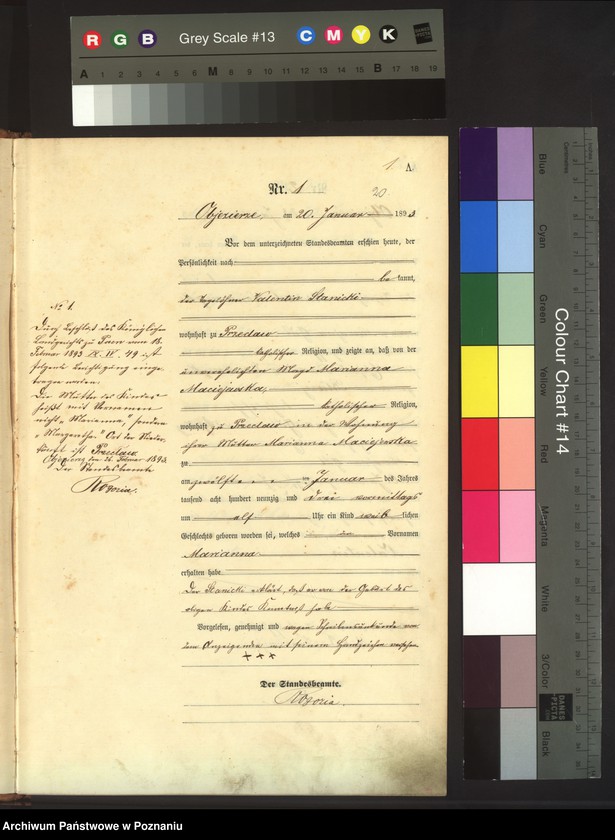 R G B Grey Scale #13 C M Y K
A 1 2 3 4 5 6 M 8 9 10 11 12 13 14 15 B 17 18 19
1. A.
Nr. 1
20
Objezierze, am 20. Januar 1893
Vor dem unterzeichneten Standesbeamten erschien heute, der
Persönlichkeit nach
be kannt,
der Tagelöhner Valentin Stanicki
wohnhaft zu Przeclaw
katholischer Religion, und zeigte an, daß von der
unverehelichten Magd Marianna
Maciejewska,
katholischer Religion,
wohnhaft zu Przeclaw in der Wohnung
ihrer Mutter Marianna Maciejewska
zu
am zwölften Januar des Jahres
tausend acht hundert neunzig und drei vormittags
um elf Uhr ein Kind weib lichen
Geschlechts geboren worden sei, welches den Vornamen
Marianna
erhalten habe
Der Stanicki erklärt, daß er von der Geburt des
obigen Kindes Kenntniß habe
Vorgelesen, genehmigt und wegen Schreibensunkunde von
dem Anzeigenden mit seinem Handzeichen versehen
+++
Der Standesbeamte.
Rogoria.
No 1.
Durch Beschluß des Königlichen
Landgerichts zu Posen vom 18.
Februar 1893 IX. IV. 79 ist
folgende Berichtigung einge-
tragen worden.
Die Mutter des Kindes
heißt mit Vornamen
nicht "Marianna", sondern
"Margaretha". Ort der Nieder-
kunft ist Przeclaw.
Objezierze, den 26. Februar 1893.
Der Standesbeamte
Rogoria.
Colour Chart #14
Blue
Cyan
Green
Yellow
Red
Magenta
White
3/Color
Black
Centimetres
DANES
PICTA
Archiwum Państwowe w Poznaniu